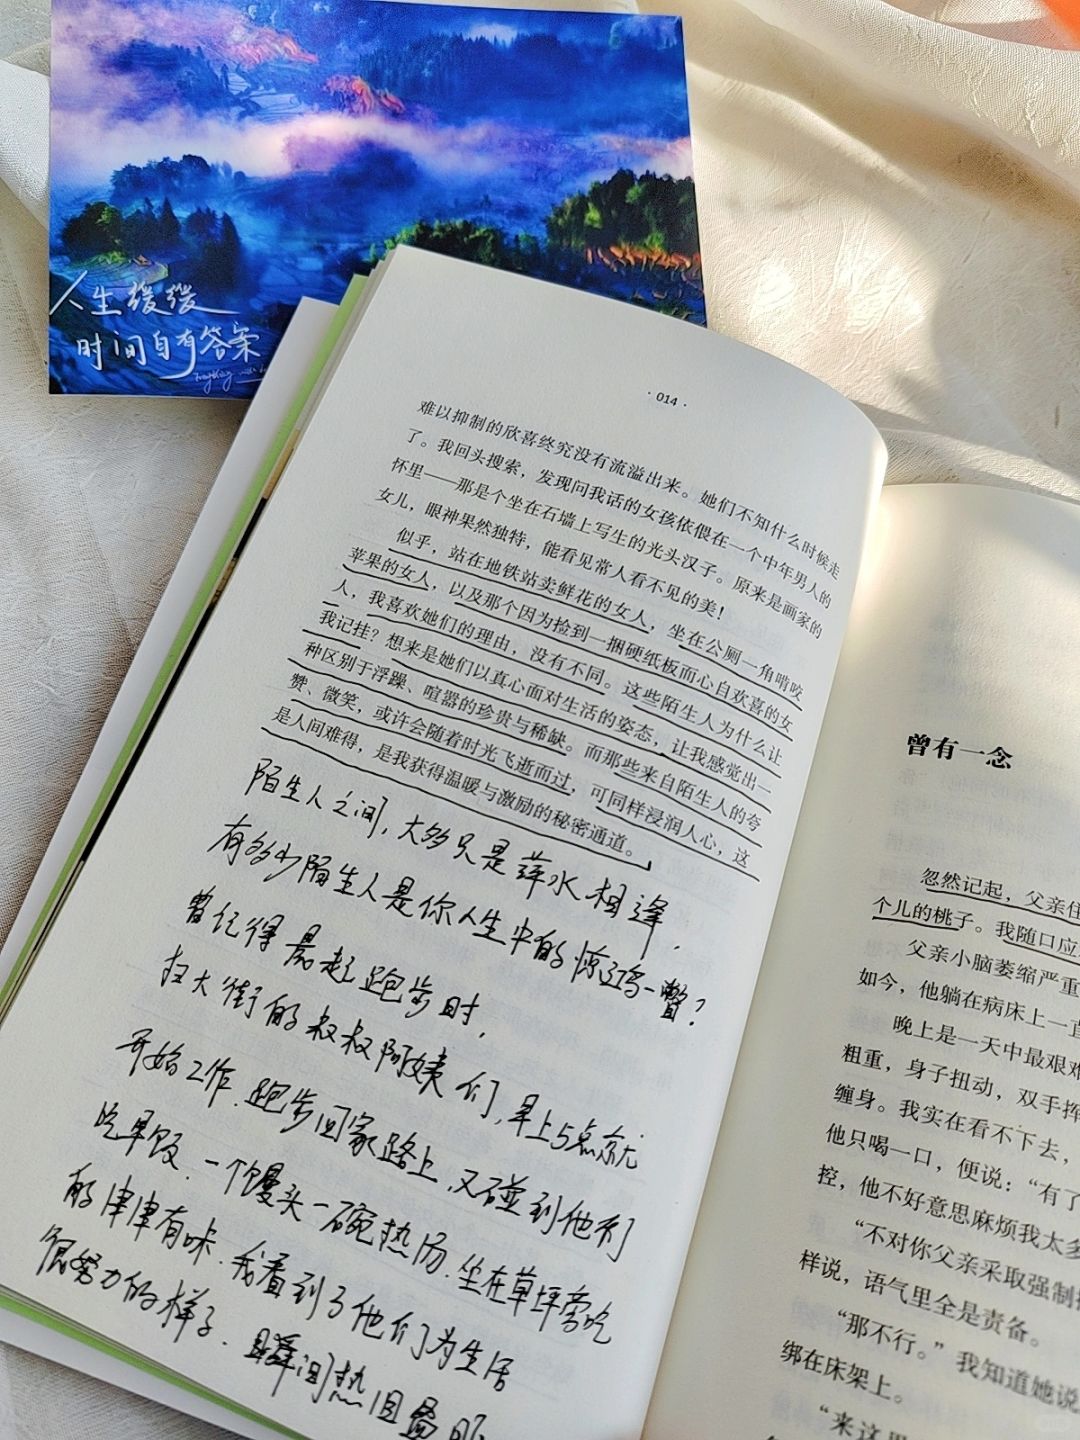 人生缓缓
时间自有答案
· 014 ·
难以抑制的欣喜终究没有流溢出来。她们不知什么时候走
了。我回头搜索，发现问我话的女孩依偎在一个中年男人的
怀里——那是个坐在石墙上写生的光头汉子。原来是画家的
女儿，眼神果然独特，能看见常人看不见的美！
似乎，站在地铁站卖鲜花的女人，坐在公厕一角啃咬
苹果的女人，以及那个因为捡到一捆硬纸板而心自欢喜的女
人，我喜欢她们的理由，没有不同。这些陌生人为什么让
我记挂？想来是她们以真心面对生活的姿态，让我感觉出一
种区别于浮躁、喧嚣的珍贵与稀缺。而那些来自陌生人的夸
赞、微笑，或许会随着时光飞逝而过，可同样浸润人心，这
是人间难得，是我获得温暖与激励的秘密通道。
陌生人之间，大多只是萍水相逢，
有多少陌生人是你人生中的惊鸿一瞥？
曾记得晨起跑步时，
扫大街的叔叔阿姨们，早上5点就
开始工作，跑步回家路上，又碰到他们
吃早饭，一个馒头一碗热汤，坐在草坪旁吃
的津津有味，我看到了他们为生活
很努力的样子，瞬间热泪盈眶
曾有一念
忽然记起，父亲住
个儿的桃子。我随口应
父亲小脑萎缩严重
如今，他躺在病床上一直
晚上是一天中最艰难
粗重，身子扭动，双手挥
缠身。我实在看不下去，
他只喝一口，便说：“有了
控，他不好意思麻烦我太多
“不对你父亲采取强制
样说，语气里全是责备。
“那不行。”我知道她说
绑在床架上。
“来这里